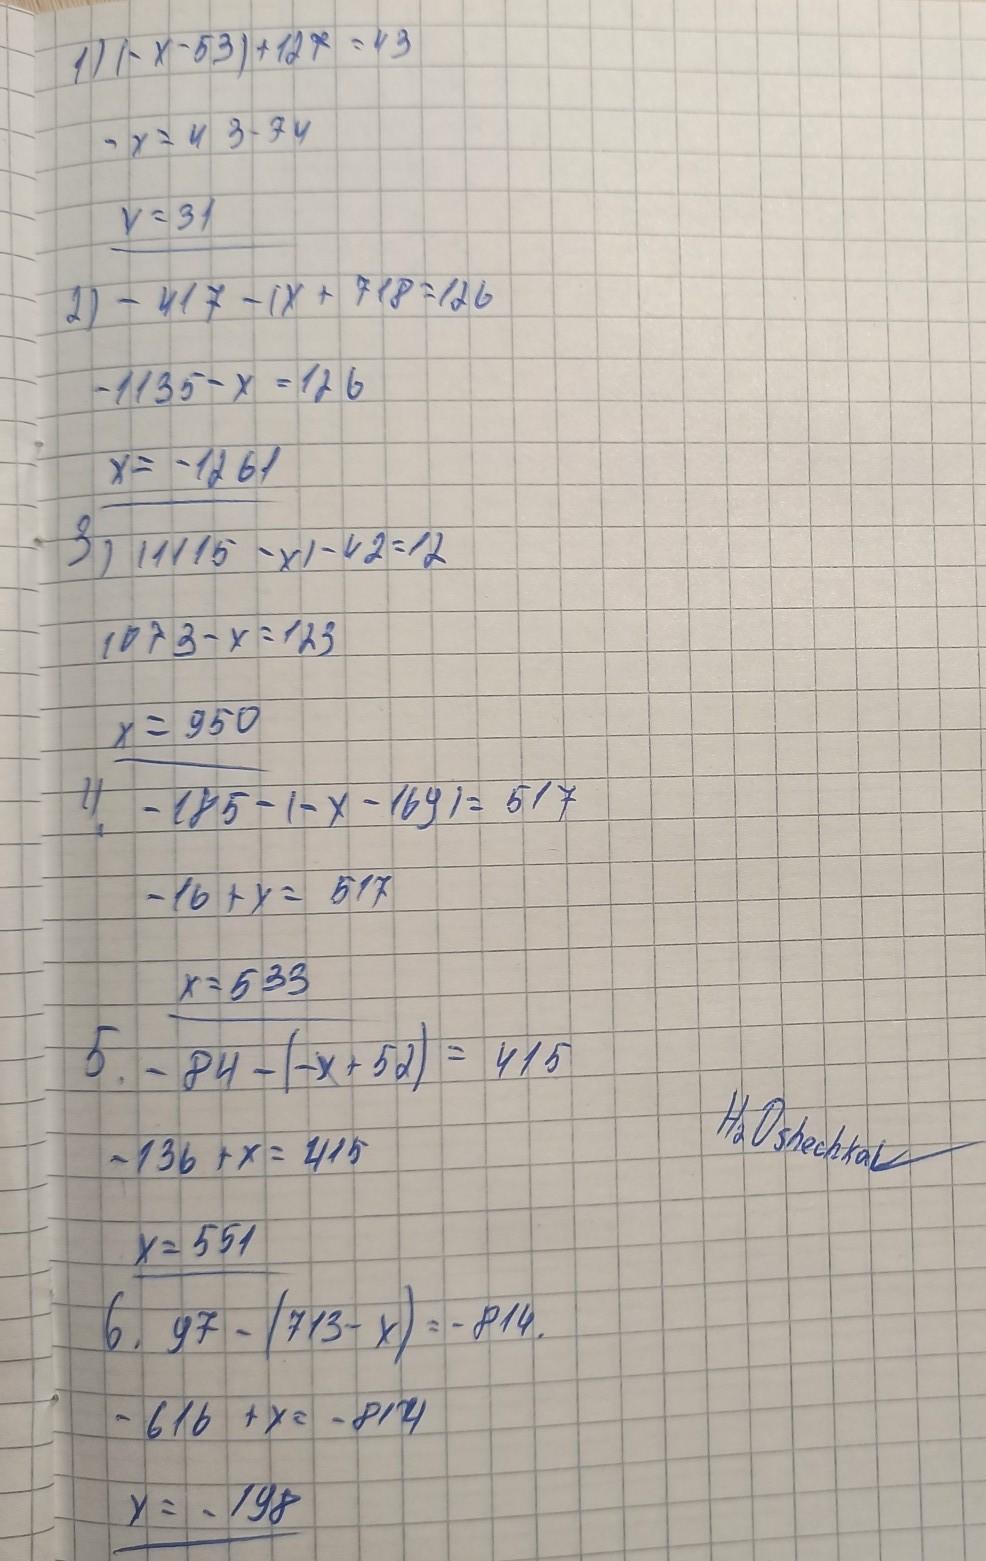 1) (-x-53)+127=43
-x=43-74
x=31
2) -417-(x+718=126
-1135-x=126
x=-1261
3) (1115-x)-42=12
1073-x=123
x=950
4. -185-(-x-169)=517
-16+x=517
x=533
5. -84-(-x+52)=415
-136+x=415
H2Oshechka
x=551
6. 97-(713-x)=-814.
-616+x=-814
x=-198